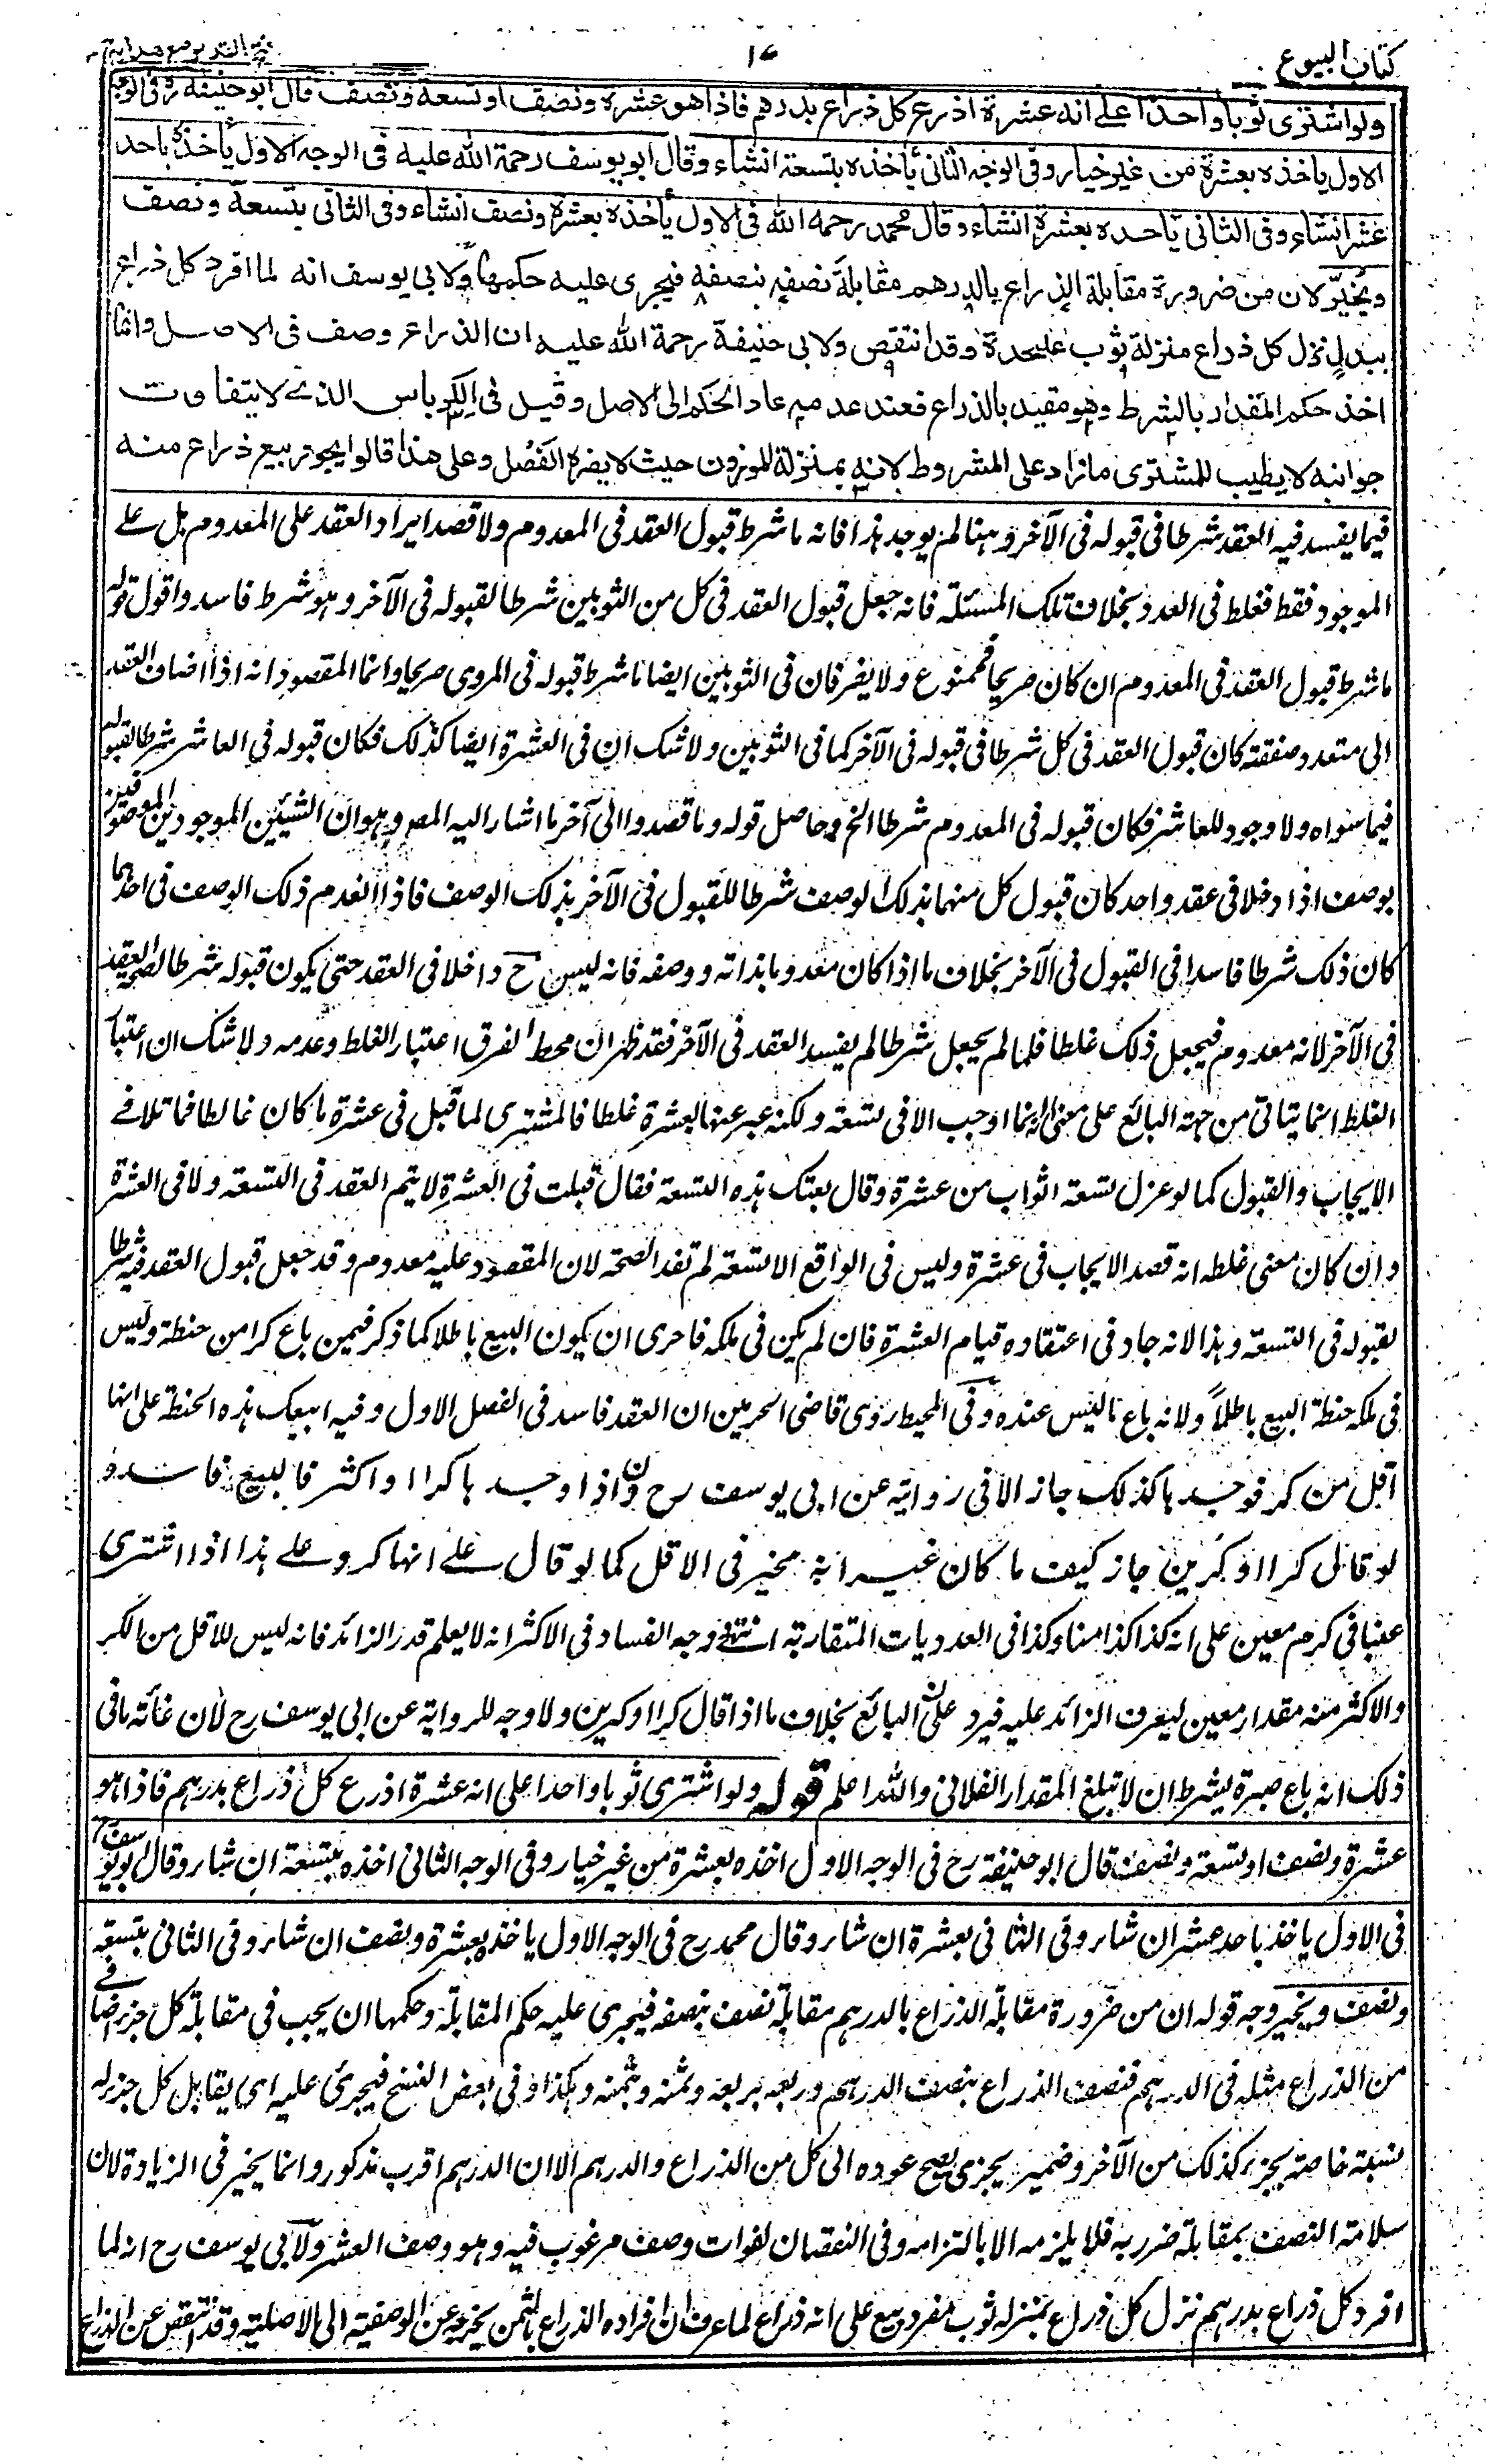 كتاب البيوع
١٧
فتح القدير مع هداية
ولو اشترى ثوبا واحدا على انه عشرة اذرع كل ذراع بدرهم فاذا هو عشرة ونصف او تسعة ونصف قال ابو حنيفة رح في الوجه
الاول ياخذه بعشرة من غير خيار وفى الوجه الثانى يأخذه بتسعة انشاء وقال ابو يوسف رحمة الله عليه فى الوجه الاول يأخذه باحد
عشر انشاء وفى الثانى يأخذه بعشرة انشاء وقال محمد رحمه الله فى الاول يأخذه بعشرة ونصف انشاء وفى الثانى بتسعة ونصف
ويخيّر لان من ضرورة مقابلة الذراع بالدرهم مقابلة نصفه بنصفه فيجرى عليه حكمها ولابى يوسف انه لما افرد كل ذراع
ببدل نزل كل ذراع منزلة ثوب عليحدة وقد انتقص ولابى حنيفة رحمة الله عليه ان الذراع وصف فى الاصل وانما
اخذ حكم المقدار بالشرط وهو مقيد بالذراع فعند عدمه عاد الحكم الى الاصل وقيل فى الكرباس الذى لا يتفاوت
جوانبه لا يطيب للمشترى ما زاد على المشروط لانه بمنزلة الموزون حيث لا يضره الفصل وعلى هذا قالوا يجوز بيع ذراع منه
فيما يفسد فيه العقد شرطا فى قبوله فى الآخر وهنا لم يوجد هذا فانه ما شرط قبول العقد فى المعدوم ولا قصد ايراد العقد على المعدوم بل على
الموجود فقط فغلط فى العدد بخلاف تلك المسئلة فانه جعل قبول العقد فى كل من الثوبين شرطا لقبوله فى الآخر وهو شرط فاسد واقول قوله
ما شرط قبول العقد فى المعدوم ان كان صريحا فممنوع ولا يضر فان فى الثوبين ايضا ما شرط قبوله فى المروى صريحا وانما المقصود انه اذا اضاف العقد
الى متعدد صفقة كان قبول العقد فى كل شرطا فى قبوله فى الآخر كما فى الثوبين ولا شك ان فى العشرة ايضا كذلك فكان قبوله فى العاشر شرطا لقبوله
فيما سواه ولا وجود للعاشر فكان قبوله فى المعدوم شرطا الخ وحاصل قوله وما قصدوا الى آخر ما اشار اليه المص وهو ان الشيئين الموجودين الموصوفين
بوصف اذا دخلا فى عقد واحد كان قبول كل منهما بذلك الوصف شرطا للقبول فى الآخر بذلك الوصف فاذا انعدم ذلك الوصف فى احدهما
كان ذلك شرطا فاسدا فى القبول فى الآخر بخلاف ما اذا كان معدوما بذاته ووصفه فانه ليس ح داخلا فى العقد حتى يكون قبوله شرطا لصحة العقد
فى الآخر لانه معدوم فيجعل ذلك غلطا فلما لم يجعل شرطا لم يفسد العقد فى الآخر فقد ظهر ان محط الفرق اعتبار الغلط وعدمه ولا شك ان اعتبار
الغلط انما يتاتى من جهة البائع على معنى انه انما اوجب الا فى تسعة ولكنه عبر عنها بعشرة غلطا فالمشترى لما قبل فى عشرة ما كان غالطا فما تلاقى
الايجاب والقبول كما لو عزل تسعة اثواب من عشرة وقال بعتك هذه التسعة فقال قبلت فى العشرة لا يتم العقد فى التسعة ولا فى العشرة
وان كان معنى غلطه انه قصد الايجاب فى عشرة وليس فى الواقع الا تسعة لم تفد الصحة لان المقصود عليه معدوم وقد جعل قبول العقد فيه شرطا
لقبوله فى التسعة وهذا لانه جاد فى اعتقاده قيام العشرة فان لم يكن فى ملكه فاحرى ان يكون البيع باطلا كما ذكر فيمن باع كرا من حنطة وليس
فى ملكه حنطة البيع باطلاً ولانه باع ما ليس عنده وفى المحيط روى قاضى الحرمين ان العقد فاسد فى الفصل الاول وفيه ابيعك هذه الحنطة على انها
اقل من كر فوجدها كذلك جاز الا فى رواية عن ابى يوسف رح وان اذا وجدها كرا او اكثر فالبيع فاسد و
لو قال كرا او كرين جاز كيف ما كان غير انه مخير فى الاقل كما لو قال على انها كر وعلى هذا اذا اشترى
عنبا فى كرم معين على انه كذا كذا منا وكذا فى العدديات المتقاربة انتهى وجه الفساد فى الاكثر انه لا يعلم قدر الزائد فانه ليس للاقل من الكر
والاكثر منه مقدار معين ليعرف الزائد عليه فيرد على البائع بخلاف ما اذا قال كرا او كرين ولا وجه للرواية عن ابى يوسف رح لان غائة ما فى
ذلك انه باع صبرة بشرط ان لا تبلغ المقدار الفلانى والله اعلم قوله ولو اشترى ثوبا واحدا على انه عشرة اذرع كل ذراع بدرهم فاذا هو
عشرة ونصف او تسعة ونصف قال ابو حنيفة رح فى الوجه الاول اخذه بعشرة من غير خيار وفى الوجه الثانى اخذه بتسعة ان شاء وقال ابو يوسف رح
فى الاول ياخذ باحد عشر ان شاء وفى الثانى بعشرة ان شاء وقال محمد رح فى الوجه الاول ياخذه بعشرة ونصف ان شاء وفى الثانى بتسعة
ونصف ويخير وجه قوله ان من ضرورة مقابلة الذراع بالدرهم مقابلة نصف بنصفه فيجرى عليه حكم المقابلة وحكمها ان يجب فى مقابلة كل جزء اضافى
من الذراع مثله فى الدرهم فنصف الذراع بنصف الدرهم وربعه بربعه وثمنه وثمنه وهكذا وفى بعض النسخ فيجزئ عليه اى يقابل كل جزء له
نسبة خاصة بجزء كذلك من الآخر وضمير يجزى يصح عوده الى كل من الذراع والدرهم الا ان الدرهم اقرب مذكور وانما يخير فى الزيادة لان
سلامة النصف بمقابلة ضرر به فلا يلزمه الا بالتزامه وفى النقصان لفوات وصف مرغوب فيه وهو وصف العشر ولابى يوسف رح انه لما
افرد كل ذراع بدرهم نزل كل ذراع بمنزلة ثوب مفرد بيع على انه ذراع لما عرف ان افراده الذراع بالثمن يخرجه عن الوصفية الى الاصلية وقد انتقص عن الذراع